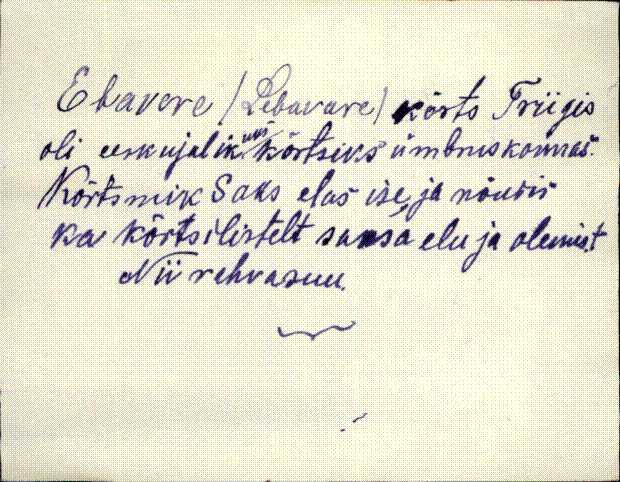 Ebavere (Lebavare) kõrts Triigis
oli eeskujalik uus kõrtsiks ümbruskonnas.
Kõrtsmik Saks elas ise ja nõudis
ka kõrtsilistelt saksa elu ja olemist
Nii rahvasuu.